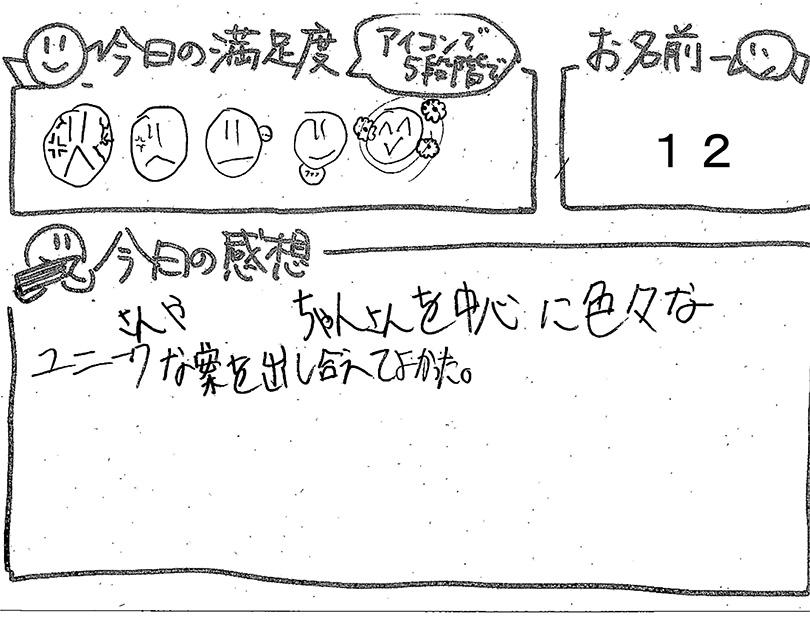 今日の満足度
アイコンで
5段階で
お名前
12
今日の感想
さんや ちゃんさんを中心に色々な
ユニークな案を出し合えてよかった。